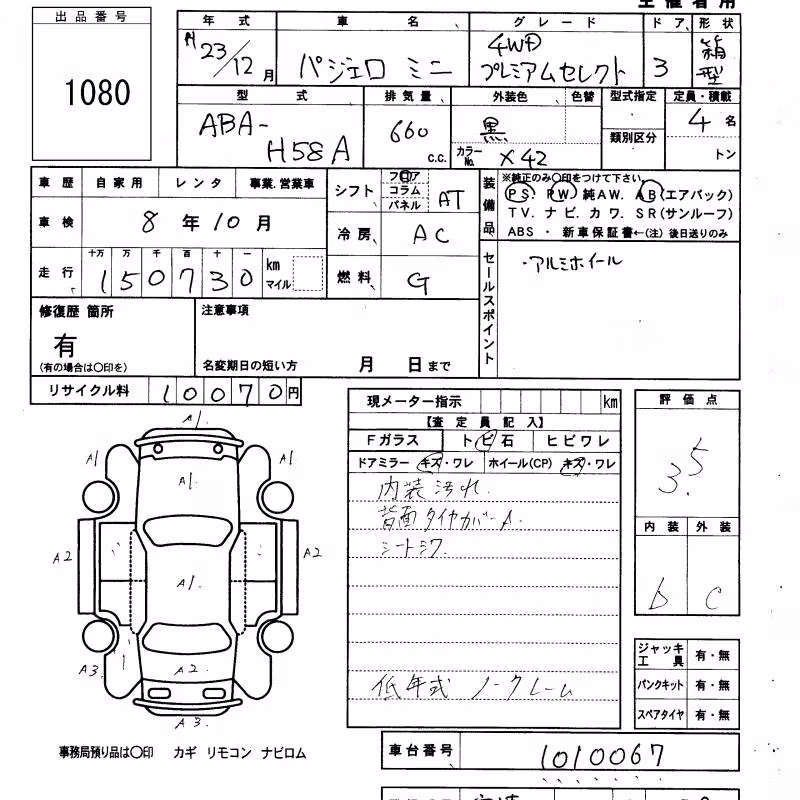 主催者用
出品番号
1080
年式 車名 グレード ドア 形状
H23/12月 パジェロ ミニ 4WD プレミアムセレクト 3 箱型
型式 排気量 外装色 色替 型式指定 定員・積載
ABA-H58A 660 c.c. 黒 カラーNo. X42 類別区分 4名 トン
車歴 自家用 レンタ 事業.営業車
車検 8年10月
走行 十万 万 千 百 十 一 km マイル
150730
シフト フロア コラム パネル AT
冷房 AC
燃料 G
装備品 ※純正のみ○印をつけて下さい。
PS. PW. 純AW. AB(エアバック)
TV. ナビ. カワ. SR(サンルーフ)
ABS ・ 新車保証書←(注) 後日送りのみ
セールスポイント
・アルミホイール
修復歴 箇所
有
(有の場合は○印を)
注意事項
名変期日の短い方 月 日まで
リサイクル料 10070円
A1
A1 A1
A1
A2 A2
A1.
A3 A2. A3
A3.
現メーター指示 km
【査定員記入】
Fガラス トビ石 ヒビワレ
ドアミラー キズ・ワレ ホイール(CP) キズ・ワレ
内装汚れ.
背面タイヤカバーA.
シートシワ
低年式 ノークレーム
評価点
3.5
内装 外装
D C
ジャッキ工具 有・無
パンクキット 有・無
スペアタイヤ 有・無
事務局預り品は○印 カギ リモコン ナビロム
車台番号 1010067